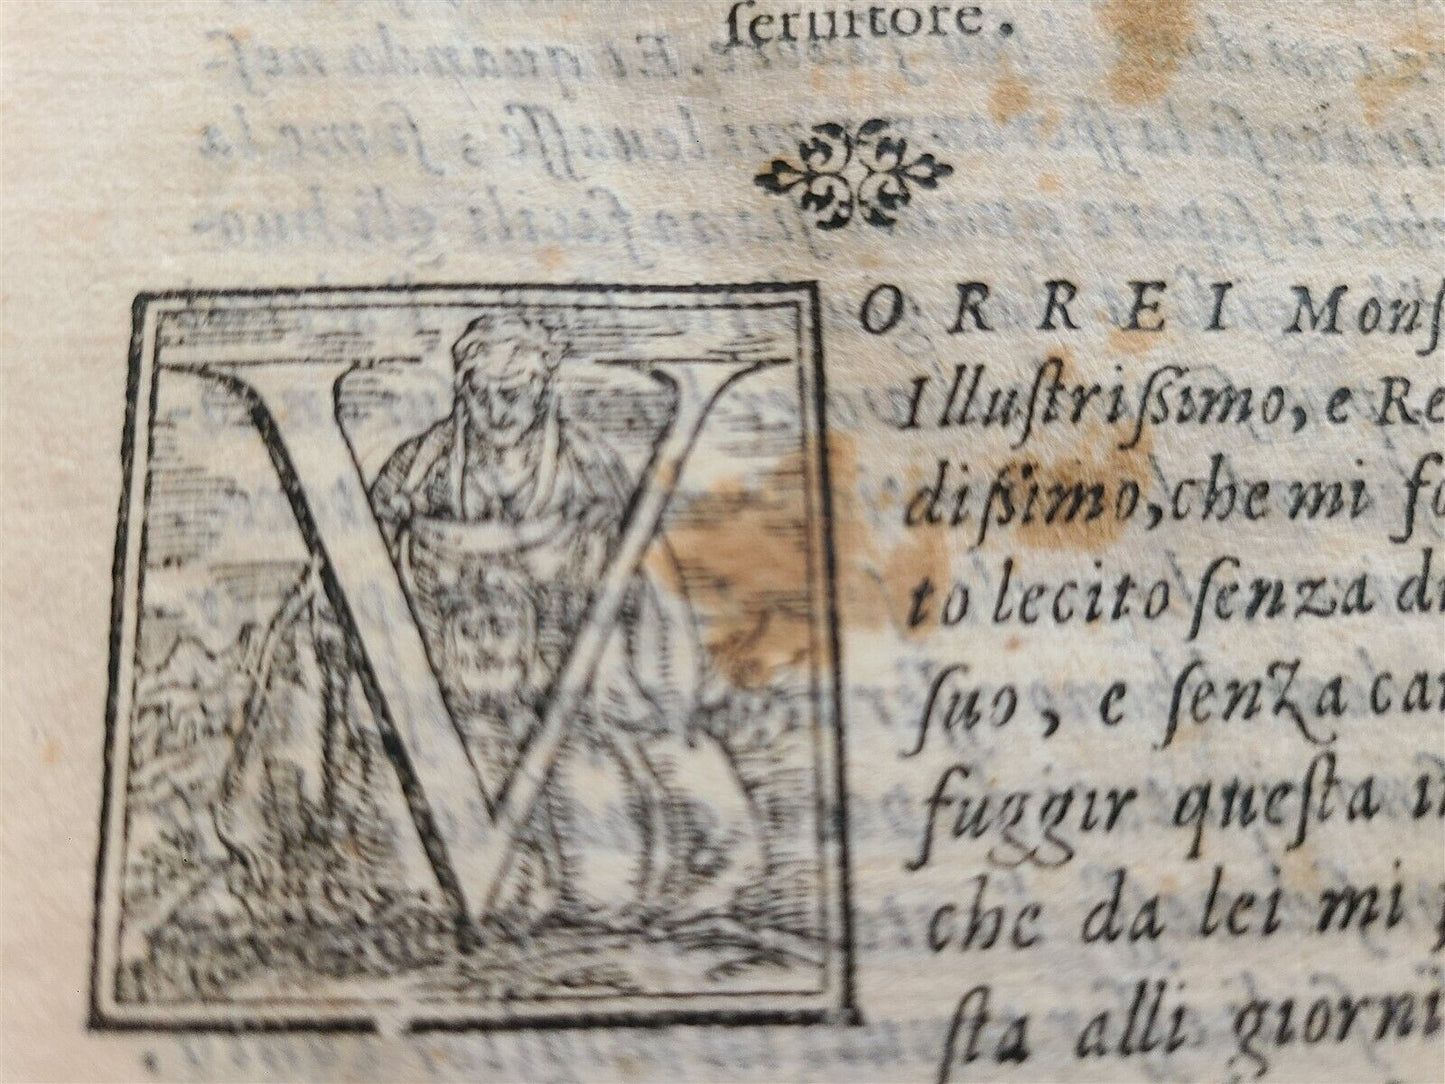 ſeruitore.
VORREI Monſ
Illuſtriſſimo, e Re
diſſimo, che mi fo
to lecito ſenza di
ſuo, e ſenza car
fuggir queſta i
che da lei mi p
ſta alli giorni